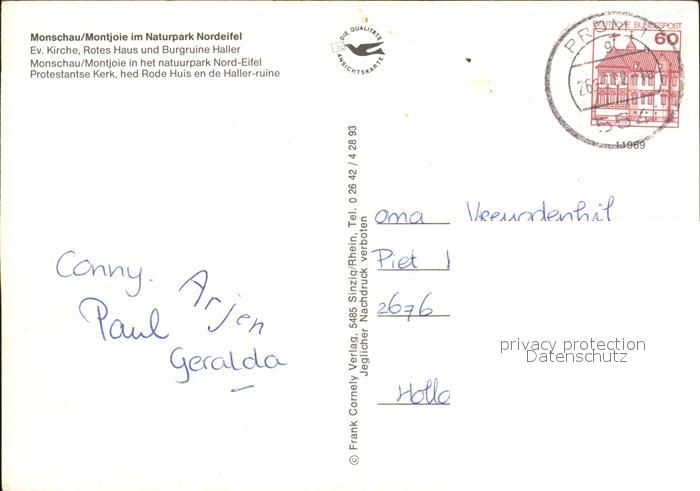 Monschau/Montjoie im Naturpark Nordeifel
Ev. Kirche, Rotes Haus und Burgruine Haller
Monschau/Montjoie in het natuurpark Nord-Eifel
Protestantse Kerk, hed Rode Huis en de Haller-ruine
DIE QUALITÄTS
ANSICHTSKARTE
DEUTSCHE BUNDESPOST
60
PRÜM
554
11969
© Frank Cornely Verlag, 5485 Sinzig/Rhein, Tel. 0 26 42 / 4 28 93
Jeglicher Nachdruck verboten
Conny. Arjen
Paul
Geralda
oma
Piet
2676
Holla
privacy protection
Datenschutz